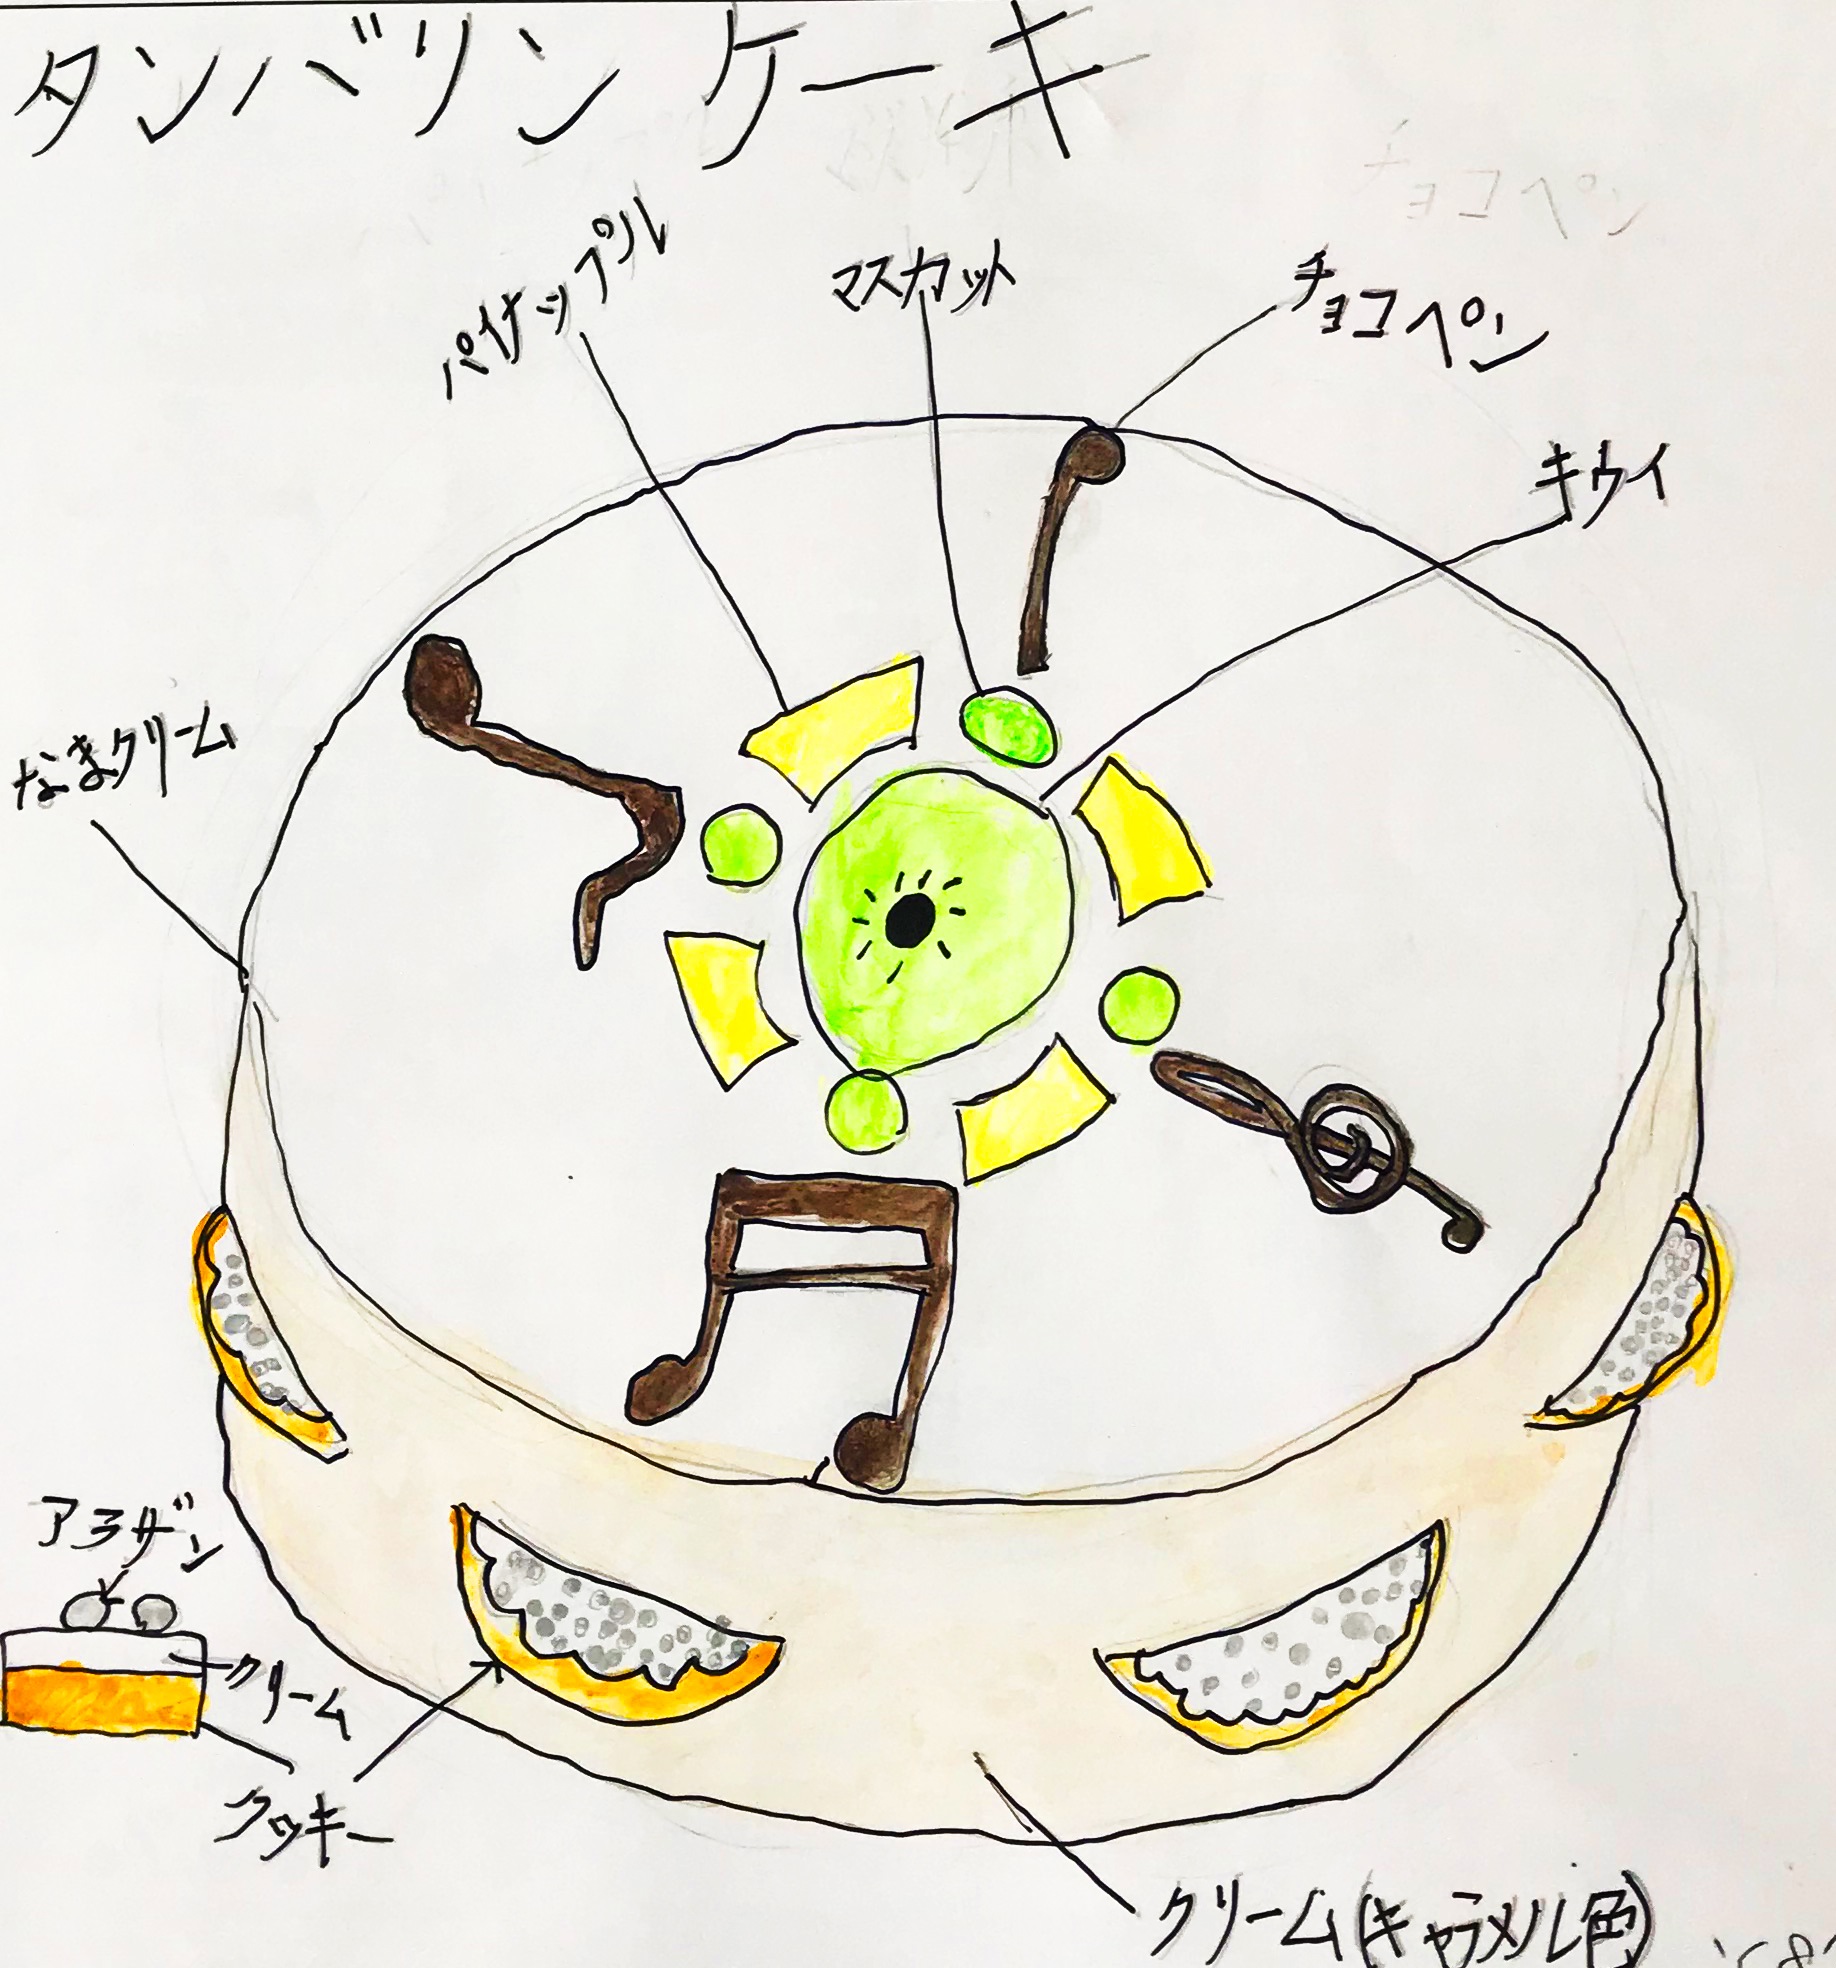 タンバリンケーキ
パイナップル
マスカット
チョコペン
キウイ
なまクリーム
アラザン
クリーム
クッキー
クリーム(キャラメル色)